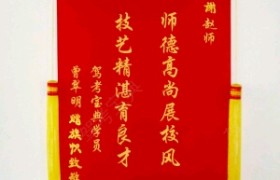 謝赵师
师德高尚展校风
技艺精湛育良才
驾考宝典学员
曹翠明